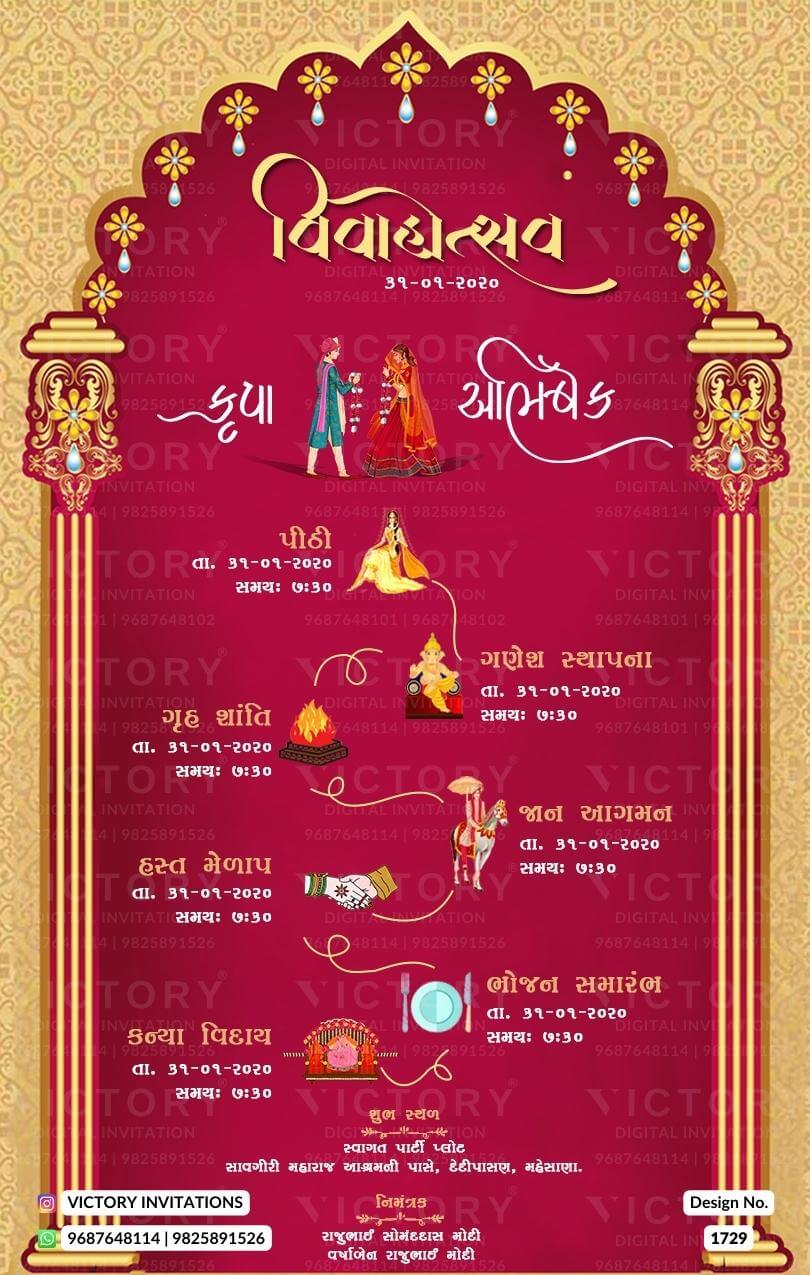 વિવાહોત્સવ
૩૧-૦૧-૨૦૨૦
કૃપા
અભિષેક
પીઠી
તા. ૩૧-૦૧-૨૦૨૦
સમયઃ ૭ઃ૩૦
ગણેશ સ્થાપના
તા. ૩૧-૦૧-૨૦૨૦
સમયઃ ૭ઃ૩૦
ગૃહ શાંતિ
તા. ૩૧-૦૧-૨૦૨૦
સમયઃ ૭ઃ૩૦
જાન આગમન
તા. ૩૧-૦૧-૨૦૨૦
સમયઃ ૭ઃ૩૦
હસ્ત મેળાપ
તા. ૩૧-૦૧-૨૦૨૦
સમયઃ ૭ઃ૩૦
ભોજન સમારંભ
તા. ૩૧-૦૧-૨૦૨૦
સમયઃ ૭ઃ૩૦
કન્યા વિદાય
તા. ૩૧-૦૧-૨૦૨૦
સમયઃ ૭ઃ૩૦
શુભ સ્થળ
સ્વાગત પાર્ટી પ્લોટ
સાવગીરી મહારાજ આશ્રમની પાસે, દેદીપાસણ, મહેસાણા.
નિમંત્રક
રાજુભાઈ સોમદાસ મોદી
વર્ષાબેન રાજુભાઈ મોદી
VICTORY INVITATIONS
9687648114 | 9825891526
Design No.
1729
VICTORY
DIGITAL INVITATION
9687648114 | 9825891526